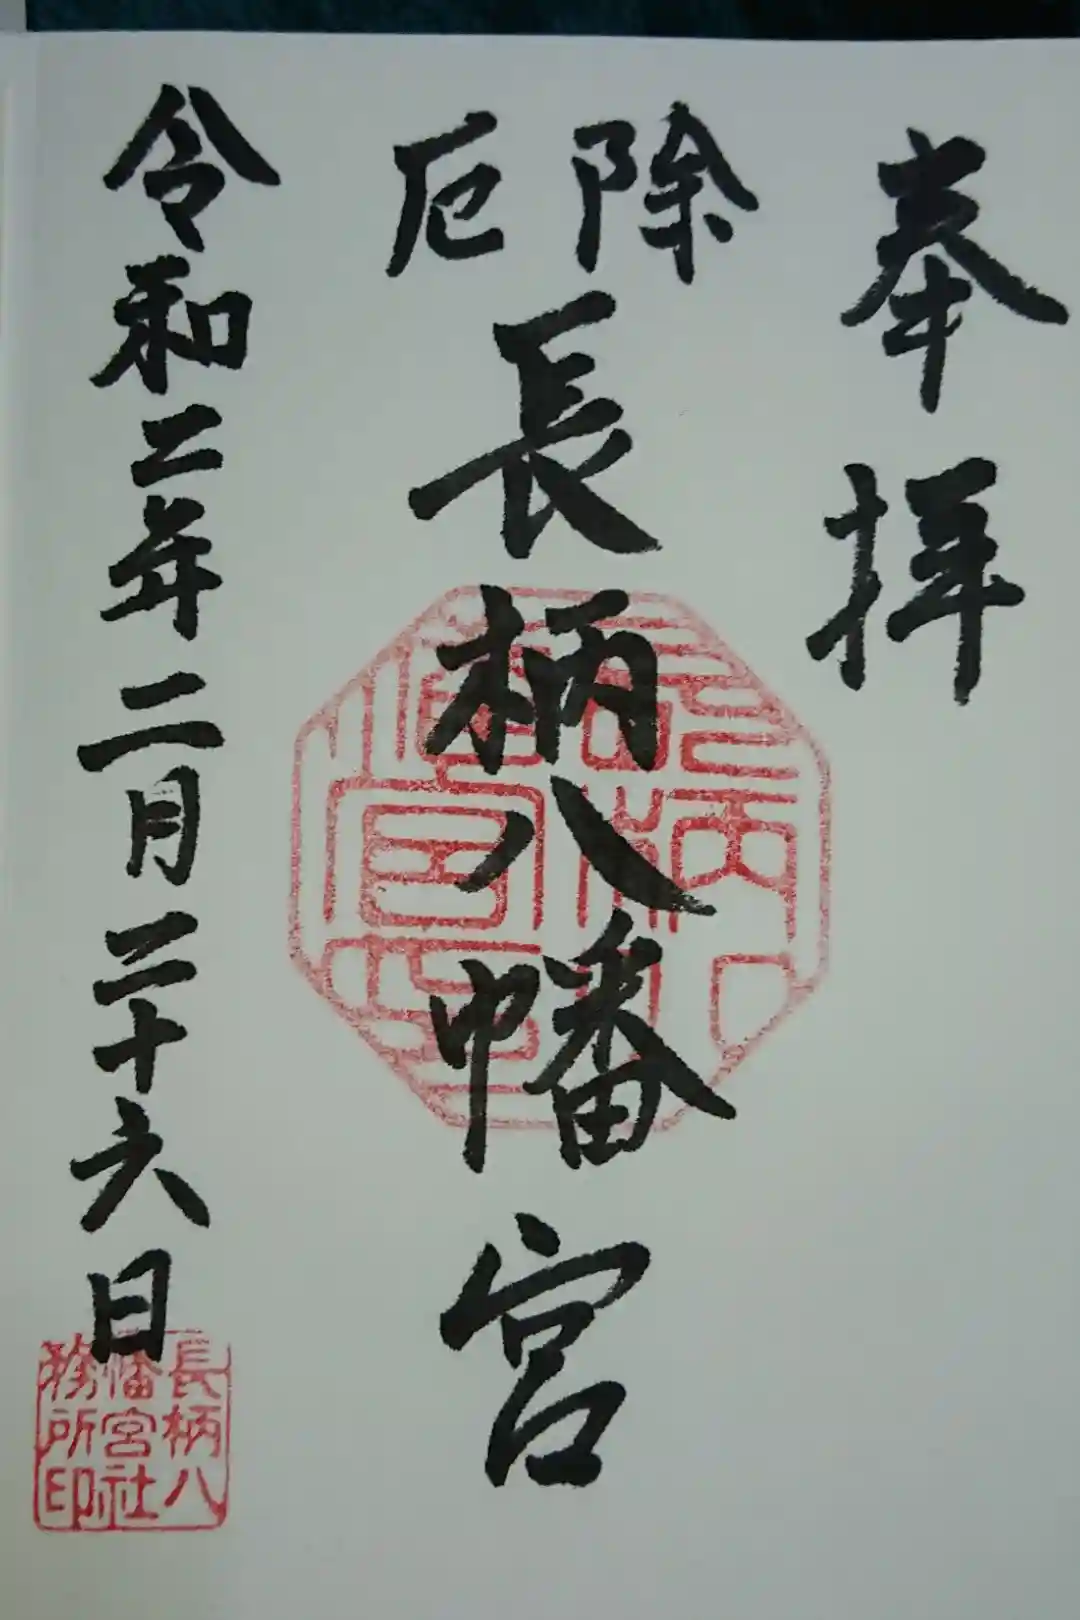 奉拝
除厄
長柄八幡宮
令和二年二月二十六日
長柄八
幡宮社
務所印